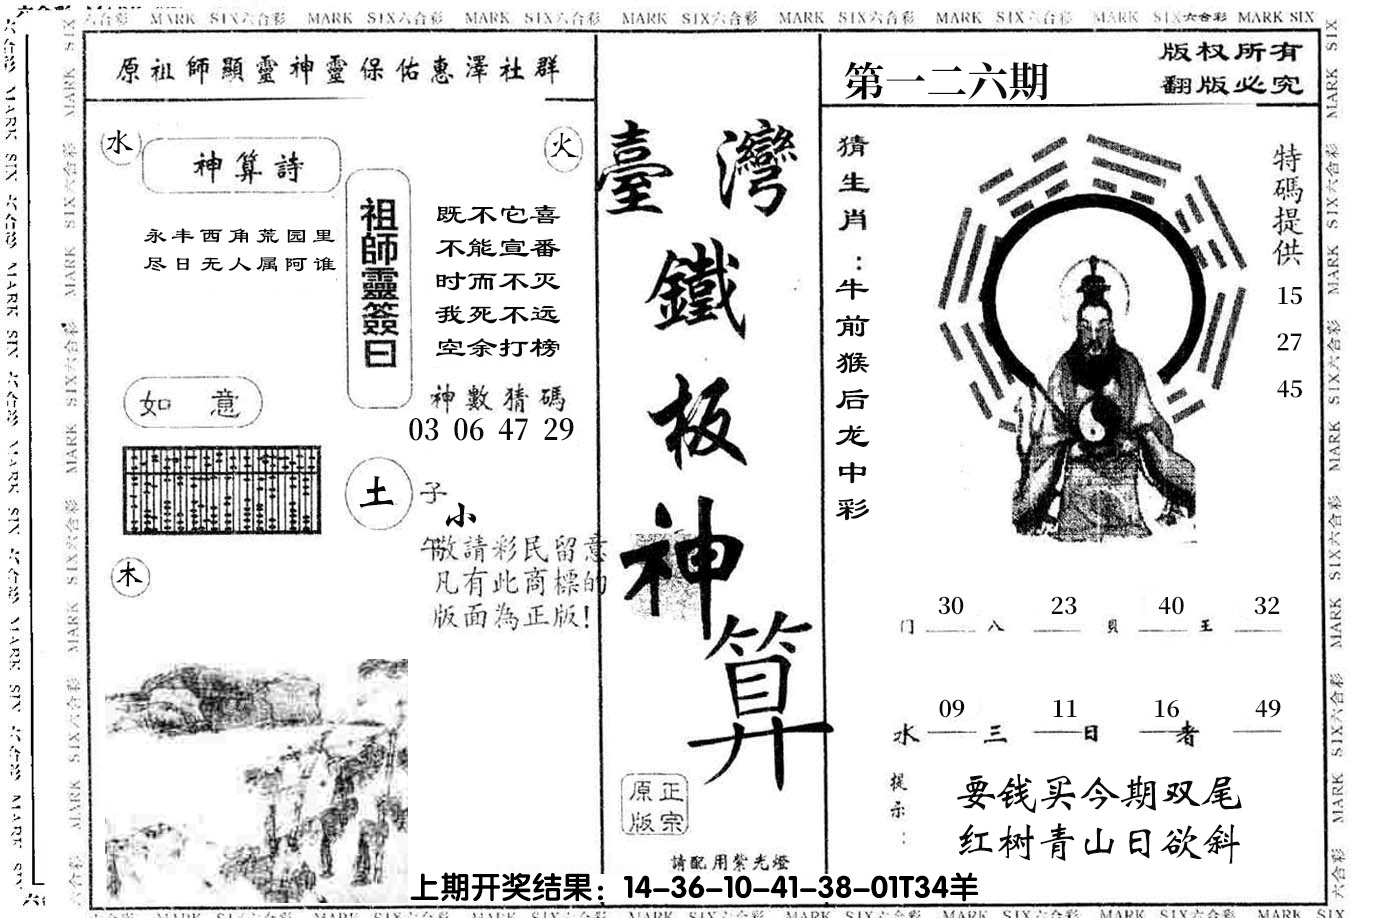 六合彩 MARK SIX六合彩 MARK SIX六合彩 MARK SIX六合彩 MARK SIX六合彩 MARK SIX六合彩 MARK SIX六合彩 MARK SIX六合彩 MARK SIX
原祖師顯靈神靈保佑惠澤社群
水
火
神算詩
永丰西角荒园里
尽日无人属阿谁
祖師靈簽曰
既不它喜
不能宣番
时而不灭
我死不远
空余打榜
神數猜碼
03 06 47 29
如 意
土
子
小
午
敬請彩民留意
凡有此商標的
版面為正版!
木
臺灣
鐵
板
神
算
正宗
原版
請配用紫光燈
第一二六期
版权所有
翻版必究
猜生肖:牛前猴后龙中彩
特碼提供
15
27
45
30 23 40 32
门 八 貝 王
09 11 16 49
水 三 日 者
提示:
要钱买今期双尾
红树青山日欲斜
上期开奖结果：14-36-10-41-38-01T34羊